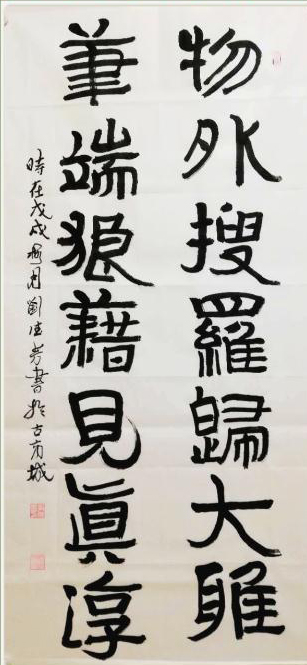 物外搜羅歸大雅
筆端狼藉見真淳
時在戊戌 月劉 芳書於古 城